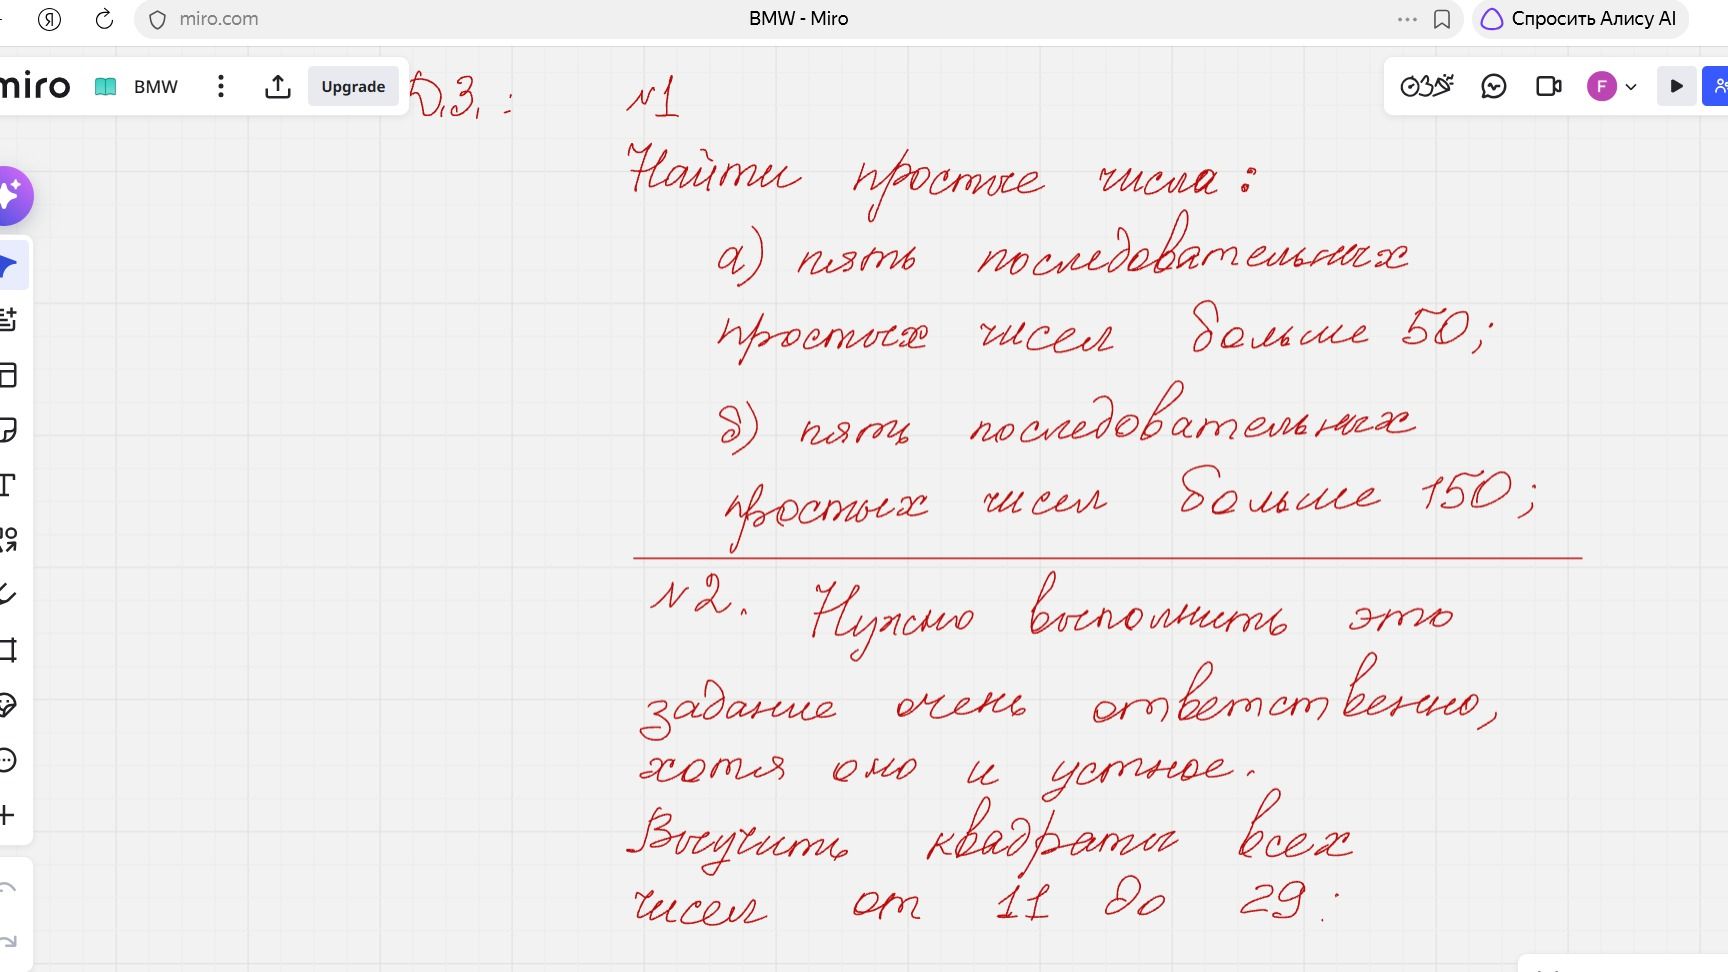 miro.com
BMW - Miro
Спросить Алису AI
miro BMW Upgrade
F
Д.З. :
№1
Найти простые числа:
а) пять последовательных
простых чисел больше 50;
б) пять последовательных
простых чисел больше 150;
№2. Нужно выполнить это
задание очень ответственно,
хотя оно и устное.
Выучить квадраты всех
чисел от 11 до 29: